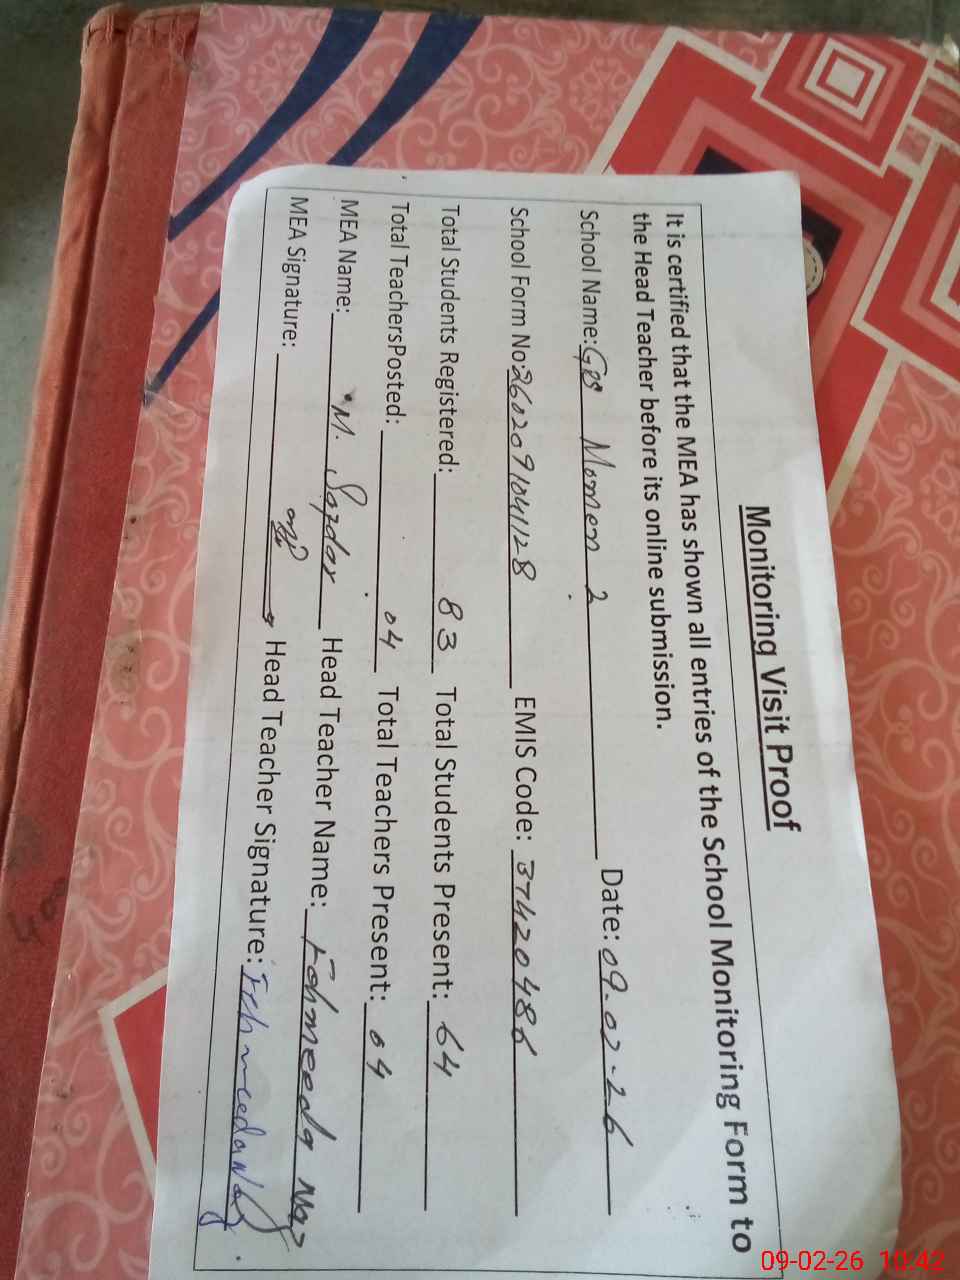 Monitoring Visit Proof
It is certified that the MEA has shown all entries of the School Monitoring Form to
the Head Teacher before its online submission.
School Name: GPS Momen 2 Date: 09-02-26
School Form No: 2602091041128 EMIS Code: 37420486
Total Students Registered: 83 Total Students Present: 64
Total TeachersPosted: 04 Total Teachers Present: 04
MEA Name: M. Safdar Head Teacher Name: Fahmeeda Naz
MEA Signature: Head Teacher Signature: Fahmeeda Naz
09-02-26 10:42